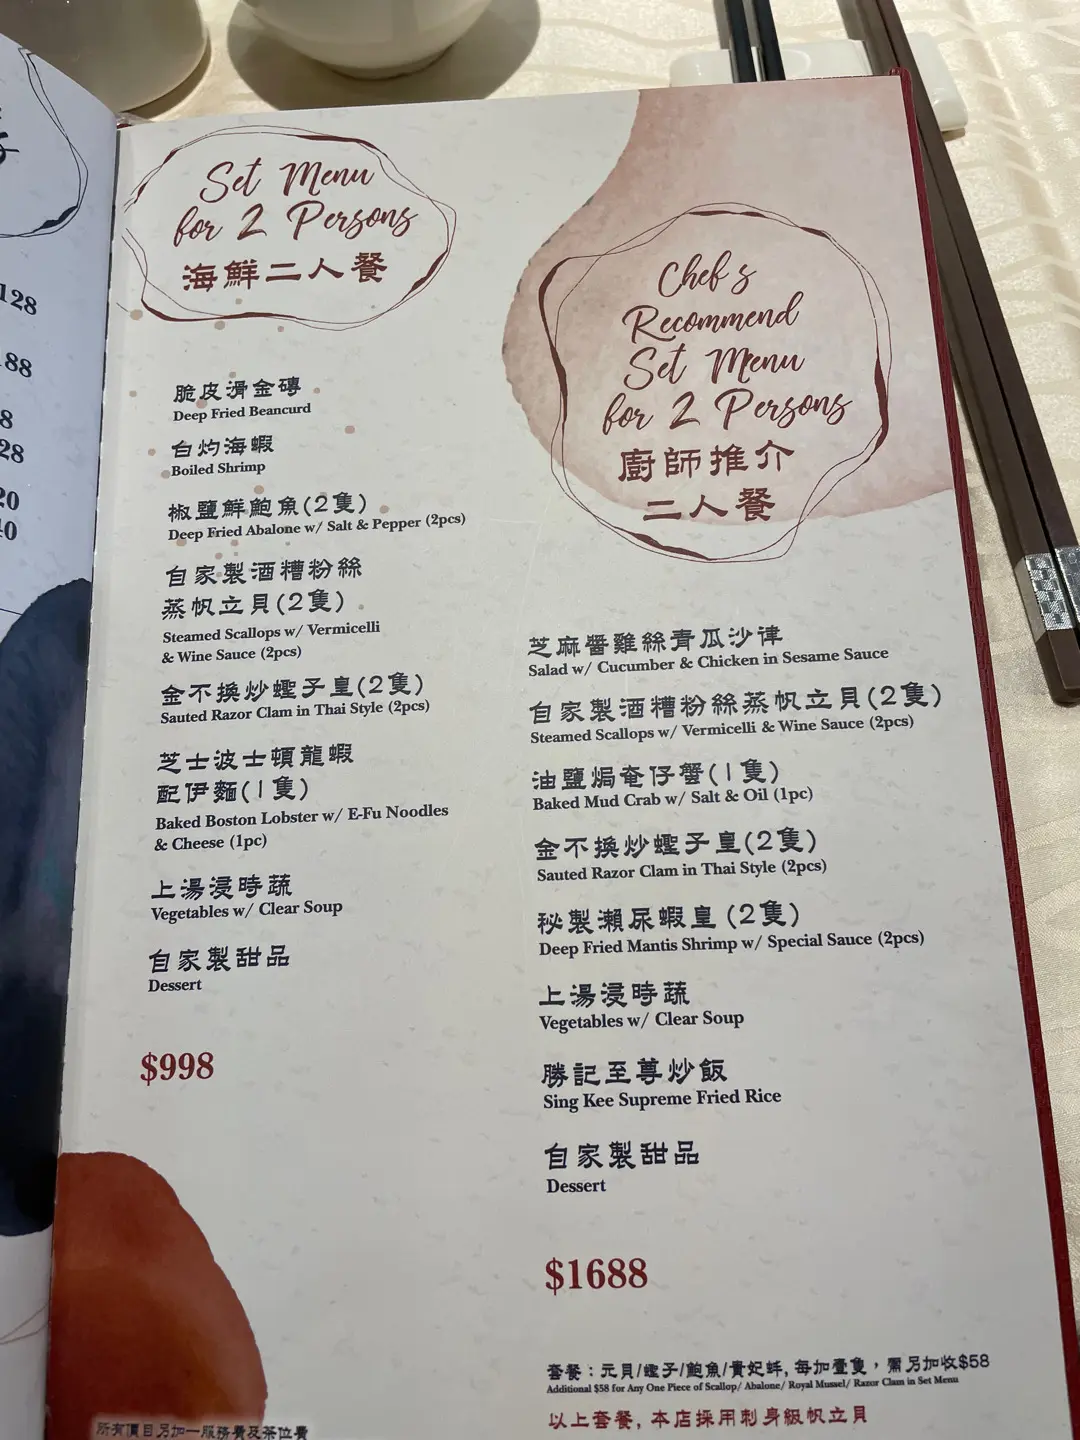 128
188
8
28
20
40
Set Menu
for 2 Persons
海鮮二人餐
脆皮滑金磚
Deep Fried Beancurd
白灼海蝦
Boiled Shrimp
椒鹽鮮鮑魚(2隻)
Deep Fried Abalone w/ Salt & Pepper (2pcs)
自家製酒糟粉絲
蒸帆立貝(2隻)
Steamed Scallops w/ Vermicelli
& Wine Sauce (2pcs)
金不換炒蟶子皇(2隻)
Sauted Razor Clam in Thai Style (2pcs)
芝士波士頓龍蝦
配伊麵(1隻)
Baked Boston Lobster w/ E-Fu Noodles
& Cheese (1pc)
上湯浸時蔬
Vegetables w/ Clear Soup
自家製甜品
Dessert
$998
所有價目另加一服務費及茶位費
Chef's
Recommend
Set Menu
for 2 Persons
廚師推介
二人餐
芝麻醬雞絲青瓜沙律
Salad w/ Cucumber & Chicken in Sesame Sauce
自家製酒糟粉絲蒸帆立貝(2隻)
Steamed Scallops w/ Vermicelli & Wine Sauce (2pcs)
油鹽焗奄仔蟹(1隻)
Baked Mud Crab w/ Salt & Oil (1pc)
金不換炒蟶子皇(2隻)
Sauted Razor Clam in Thai Style (2pcs)
秘製瀨尿蝦皇(2隻)
Deep Fried Mantis Shrimp w/ Special Sauce (2pcs)
上湯浸時蔬
Vegetables w/ Clear Soup
勝記至尊炒飯
Sing Kee Supreme Fried Rice
自家製甜品
Dessert
$1688
套餐：元貝/蟶子/鮑魚/貴妃蚌, 每加壹隻，需另加收$58
Additional $58 for Any One Piece of Scallop/ Abalone/ Royal Mussel/ Razor Clam in Set Menu
以上套餐, 本店採用刺身級帆立貝